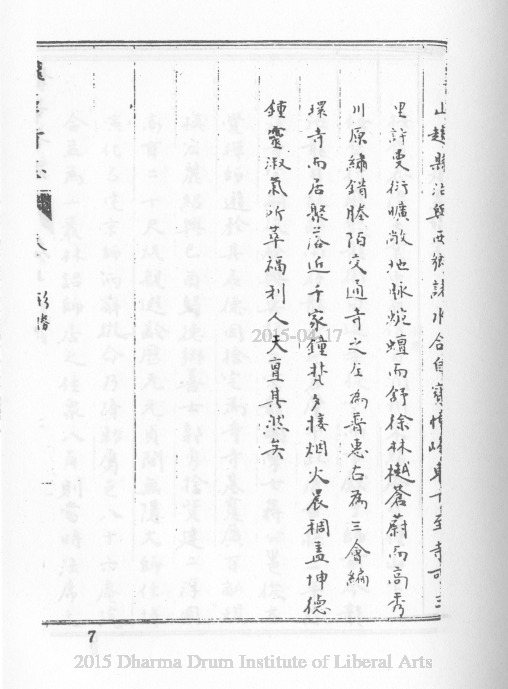 山趨縣治與西鄉諸水合自寶幢峰東下至寺可三
里許曼衍曠敞地脉蜿蟺而舒徐林樾蒼蔚而高秀
川原繡錯塍陌交通寺之左為普惠右為三會編
環寺而居聚落近千家鐘梵夕接烟火晨稠蓋坤德
鍾靈淑氣所萃福利人天亶其然矣
形勝
7
2015-04-17
2015 Dharma Drum Institute of Liberal Arts